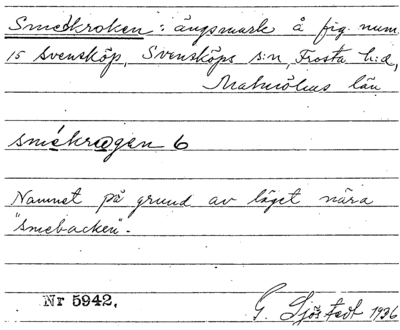 Smedkroken: ängsmark å fig. num.
15 Svensköp, Svensköps s:n, Frosta h:d,
Malmöhus län
smékrogen 6
Namnet på grund av läget nära
"Smebacken".
Nr 5942. G. Sjöstedt 1936